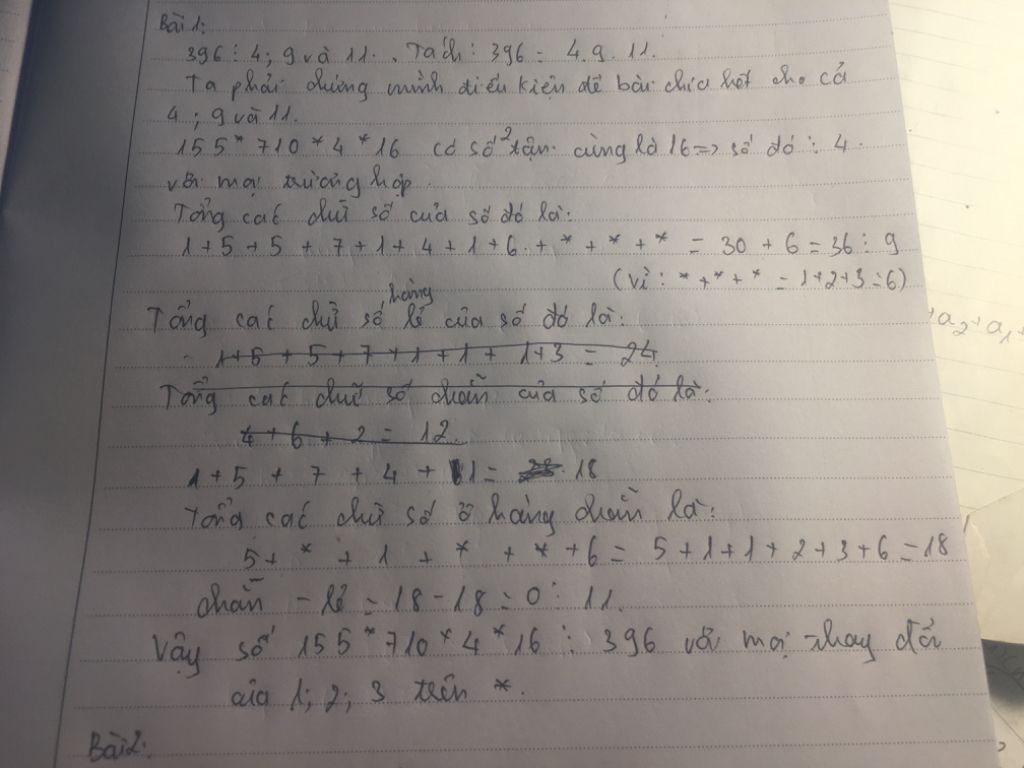 Bài 1:
396 ⋮ 4; 9 và 11. Tách: 396 = 4.9.11.
Ta phải chứng minh điều kiện đề bài chia hết cho cả
4; 9 và 11.
155*710*4*16 có số 2 tận cùng là 16 => số đó ⋮ 4.
với mọi trường hợp.
Tổng các chữ số của số đó là:
1+5+5+7+1+4+1+6+*+*+* = 30+6=36 ⋮ 9
(vì: *+*+* = 1+2+3=6)
+a2+a1+
Tổng các chữ số hàng lẻ của số đó là:
1+5+5+7+1+1+1+3 = 24.
Tổng các chữ số chẵn của số đó là:
4+6+2 = 12.
1+5+7+4+1= 18
Tổng các chữ số ở hàng chẵn là:
5+*+1+*+*+6= 5+1+1+2+3+6=18
chẵn - lẻ = 18-18=0 ⋮ 11.
Vậy số 155*710*4*16 ⋮ 396 với mọi thay đổi
của 1; 2; 3 trên *.
Bài 2: